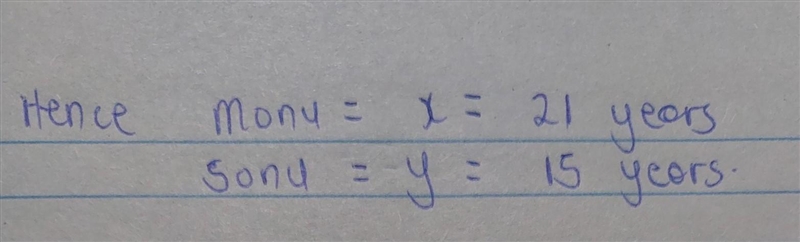 Hence Monu = x = 21 years
Sonu = y = 15 years.